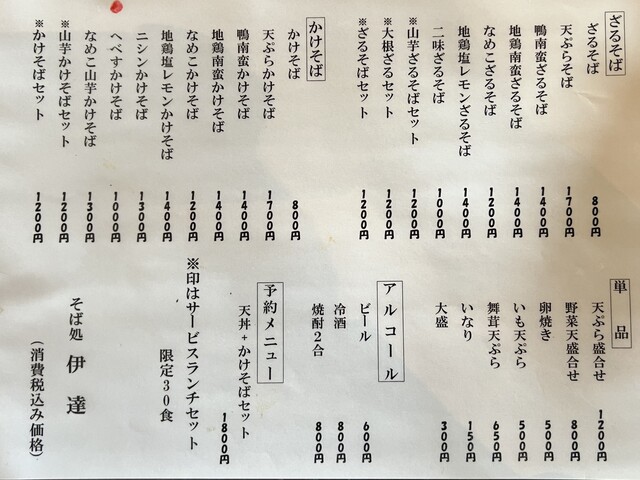 ざるそば
ざるそば 800円
天ぷらそば 1700円
鴨南蛮ざるそば 1400円
地鶏南蛮ざるそば 1400円
なめこざるそば 1200円
地鶏塩レモンざるそば 1400円
二味ざるそば 1000円
※山芋ざるそばセット 1200円
※大根ざるセット 1200円
※ざるそばセット 1200円
かけそば
かけそば 800円
天ぷらかけそば 1700円
鴨南蛮かけそば 1400円
地鶏南蛮かけそば 1400円
なめこかけそば 1200円
地鶏塩レモンかけそば 1400円
ニシンかけそば 1300円
へべすかけそば 1000円
なめこ山芋かけそば 1300円
※山芋かけそばセット 1200円
※かけそばセット 1200円
単品
天ぷら盛合せ 1200円
野菜天盛合せ 800円
卵焼き 500円
いも天ぷら 500円
舞茸天ぷら 650円
いなり 150円
大盛 300円
アルコール
ビール 600円
冷酒 800円
焼酎2合 800円
予約メニュー
天丼+かけそばセット 1800円
※印はサービスランチセット
限定30食
そば処 伊達
(消費税込み価格)